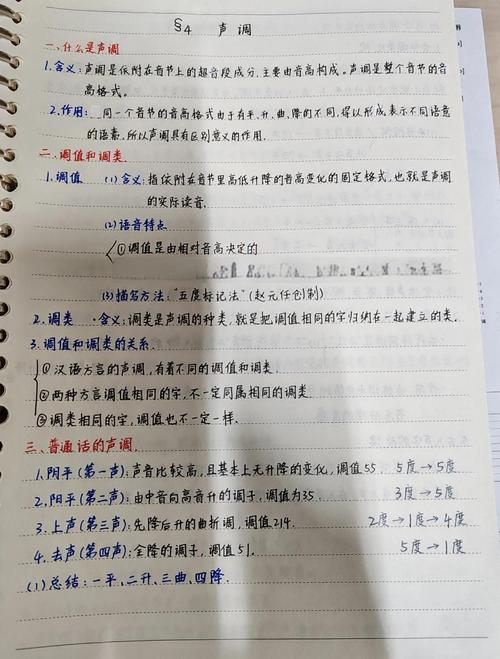 §4 声调
一、什么是声调
1.含义:声调是依附在音节上的超音段成分,主要由音高构成。声调是整个音节的音
高格式。
2.作用: 同一个音节的音高格式由于有平、升、曲、降的不同,得以形成、表示不同语意
的语素,所以声调具有区别意义的作用.
二、调值和调类
1.调值 (1)含义:指依附在音节里高低升降的音高变化的固定格式,也就是声调
的实际读音.
(2)语音特点
①调值是由相对音高决定的
(3)描写方法:“五度标记法”(赵元任创制)
2.调类 ·含义:调类是声调的种类,就是把调值相同的字归纳在一起建立的类.
3.调值和调类的关系.
①汉语方言的声调,有着不同的调值和调类.
②两种方言调值相同的字,不一定同属相同的调类
③调类相同的字,调值也不一定一样.
三、普通话的声调.
1.阴平(第一声):声音比较高,且基本上无升降的变化,调值55. 5度→5度
2.阳平(第二声):由中音向高音升的调子,调值为35. 3度→5度
3.上声(第三声):先降后升的曲折调,调值214. 2度→1度→4度
4.去声(第四声):全降的调子,调值51. 5度→1度
(1)总结:一平、二升、三曲、四降.